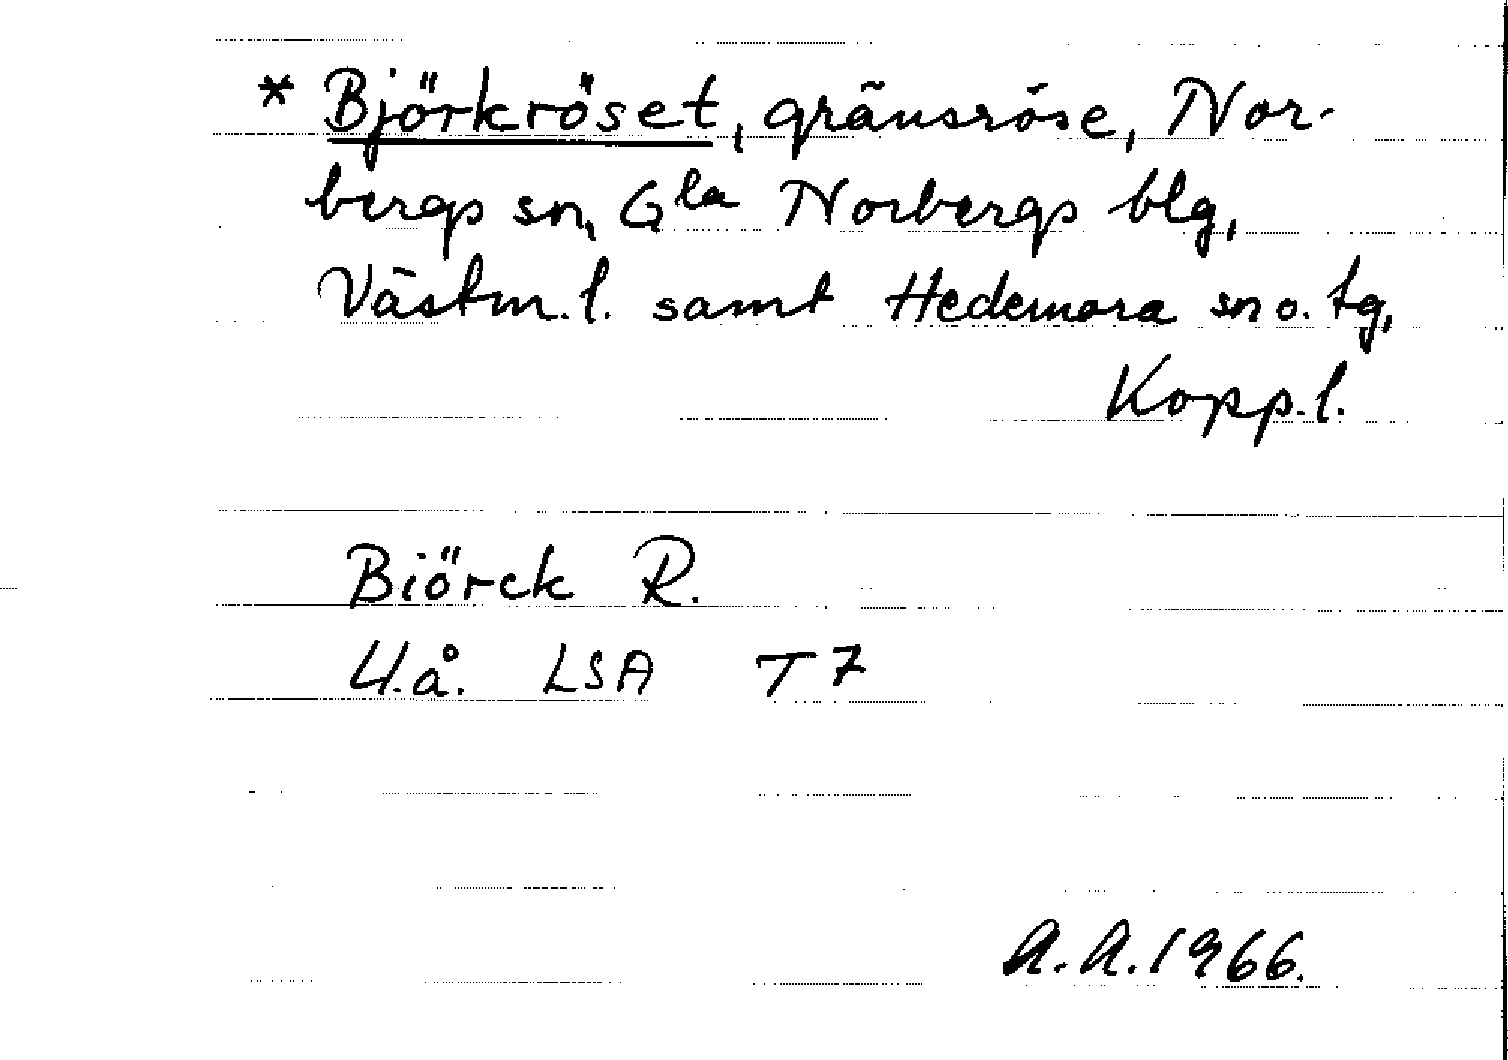 * Björkröset, gränsröse, Nor-
bergs sn, Gla Norbergs blg,
Västm. l. samt Hedemora sn o. tg,
Kopp. l.
Biörck R.
U.å. LSA T 7
A.A. 1966.